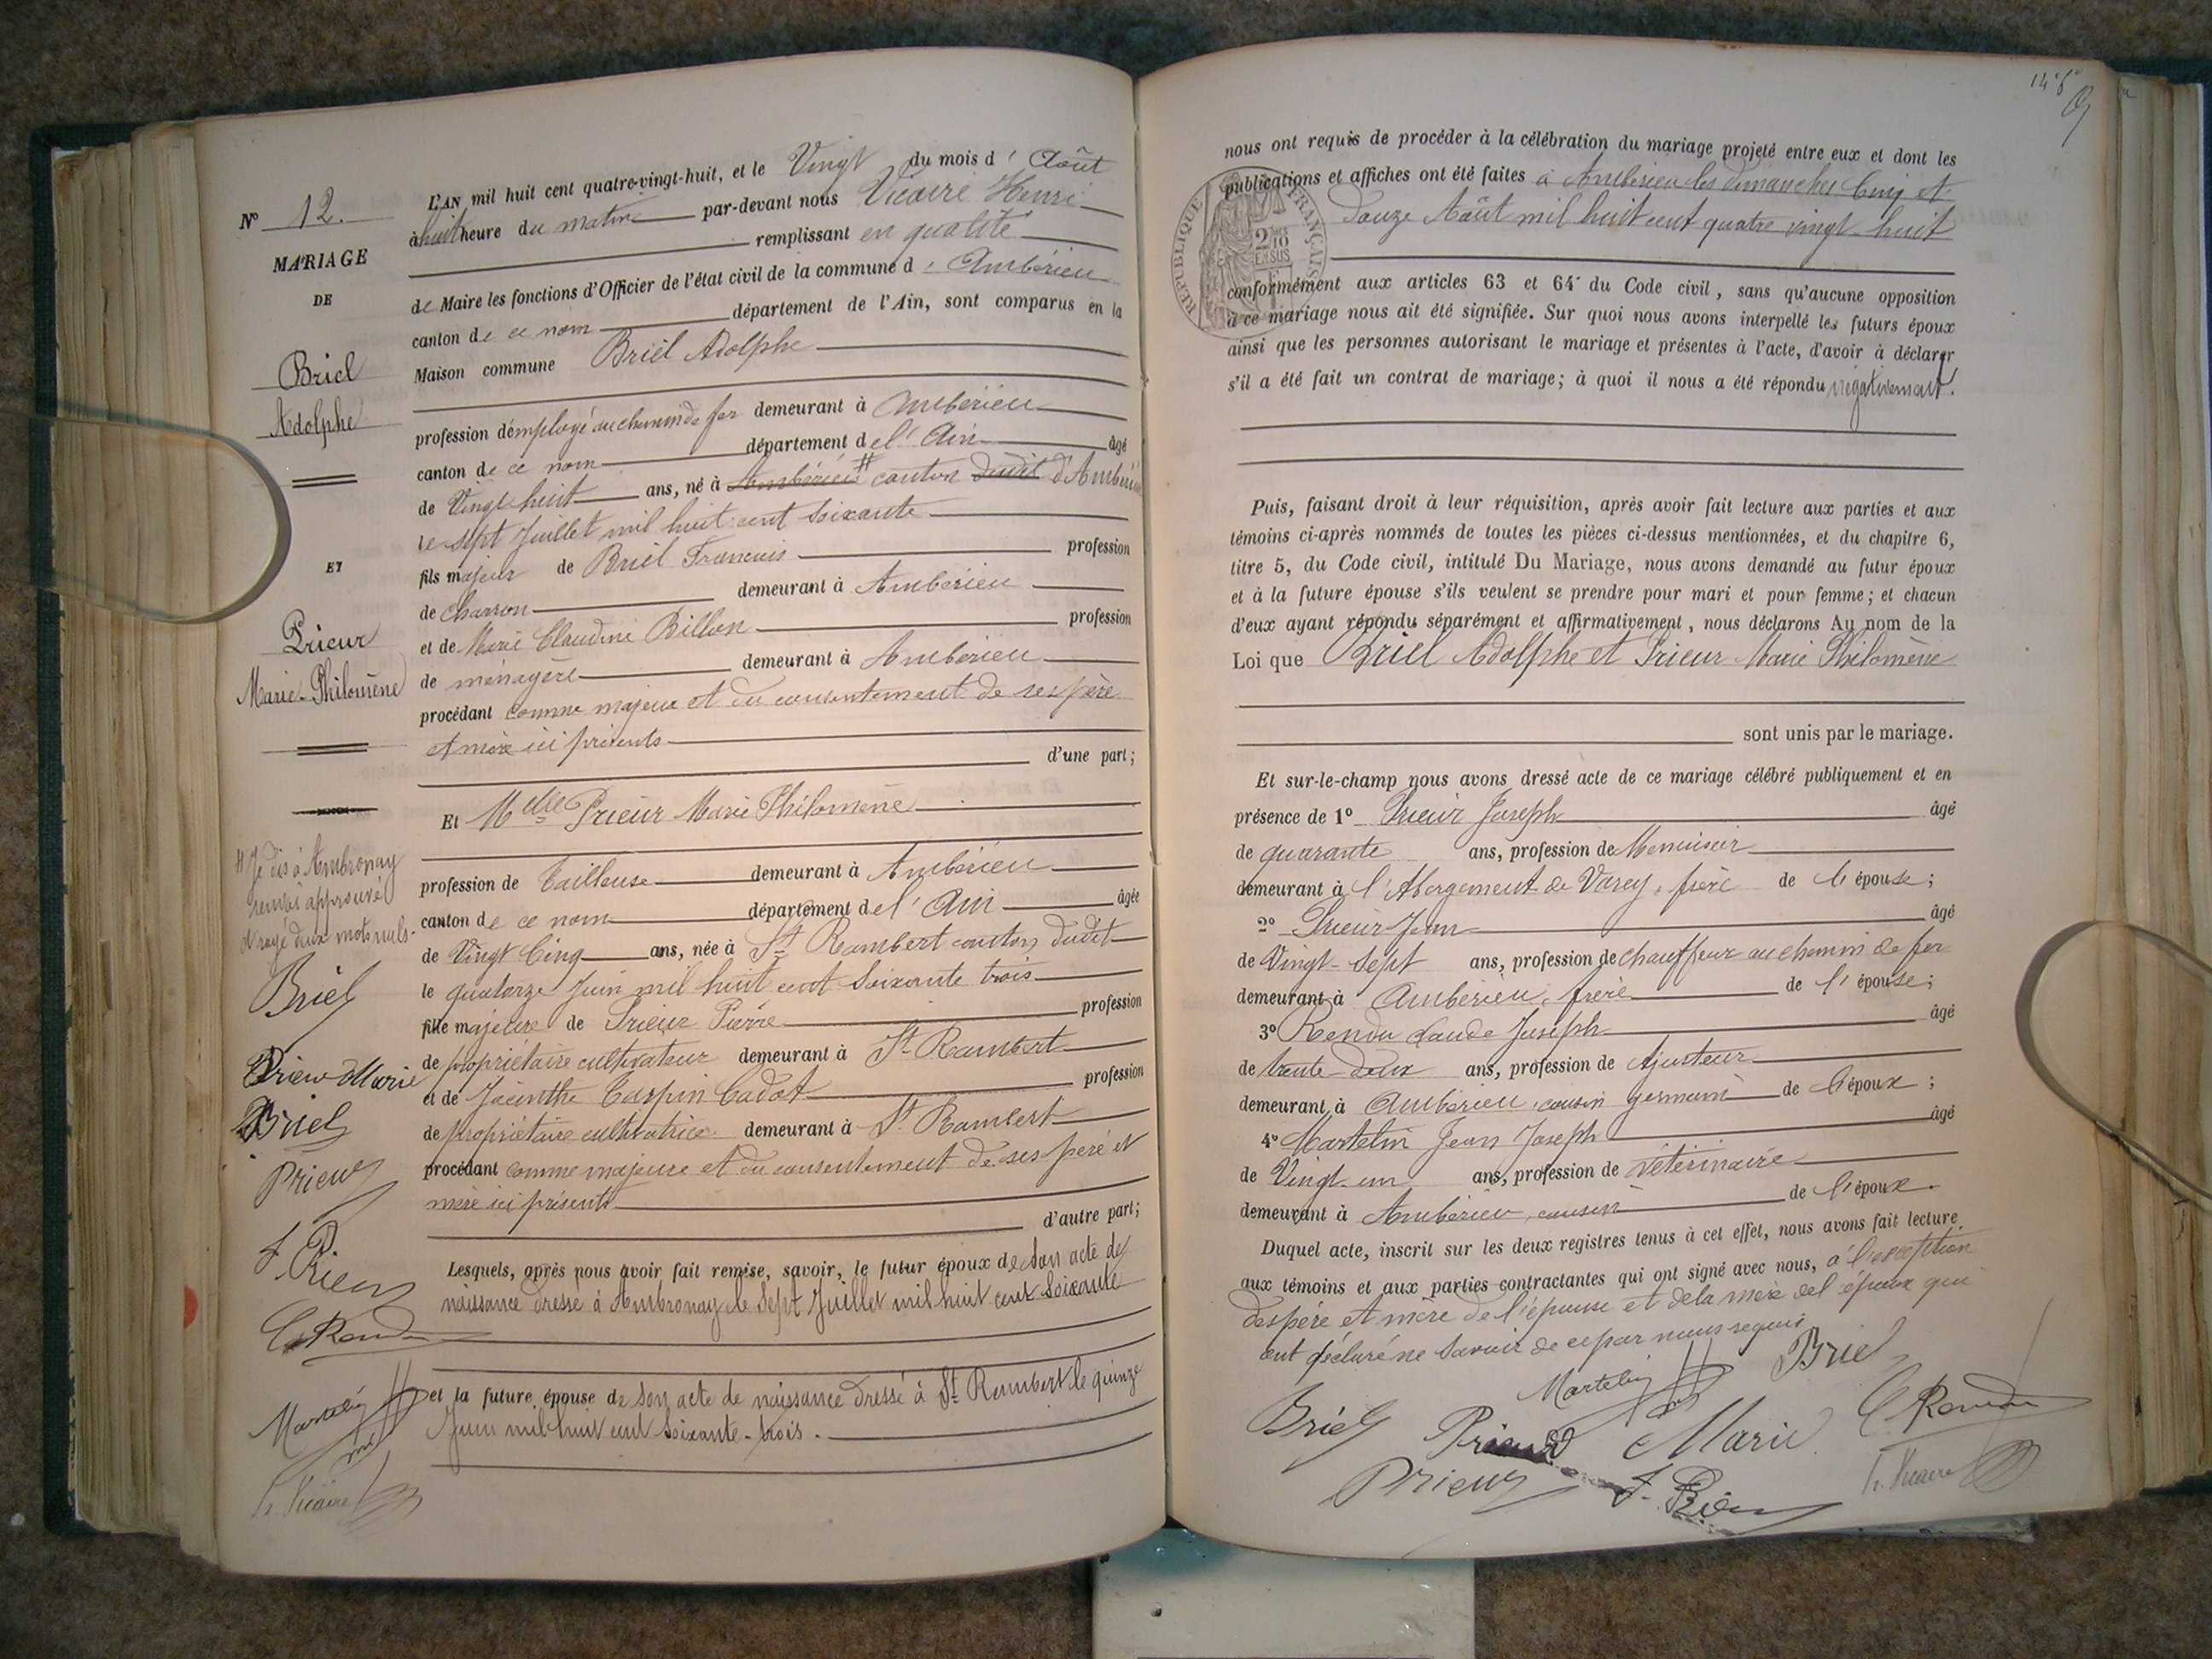 N° 12.
MARIAGE
DE
Briel
Adolphe
ET
Prieur
Marie-Philomène
# Je dis à Ambronay
renvoi approuvé
et rayé deux mots nuls.
Briel
Prieur Marie
Briel
Prieur
J. Prieur
C. Rendu
Martelin
h. Vicaire
L'AN mil huit cent quatre-vingt-huit, et le Vingt du mois d'Août
à huit heure du matin par-devant nous Vicaire Henri
remplissant en qualité
de Maire les fonctions d'Officier de l'état civil de la commune d'Ambérieu
canton de ce nom département de l'Ain, sont comparus en la
Maison commune Briel Adolphe
profession d'employé au chemin de fer demeurant à Ambérieu
canton de ce nom département de l'Ain âgé
de Vingt huit ans, né à Ambérieu # canton dudit d'Ambérieu
le sept Juillet mil huit cent soixante
fils majeur de Briel François profession
de charron demeurant à Ambérieu
et de Marie Claudine Billon profession
de ménagère demeurant à Ambérieu
procédant comme majeur et du consentement de ses père
et mère ici présents
d'une part;
Et Melle Prieur Marie Philomène
profession de Tailleuse demeurant à Ambérieu
canton de ce nom département de l'Ain âgée
de Vingt Cinq ans, née à St Rambert canton dudit
le quatorze Juin mil huit cent soixante trois
fille majeure de Prieur Pierre profession
de propriétaire cultivateur demeurant à St Rambert
et de Jacinthe Carpin Cadot profession
de propriétaire cultivatrice demeurant à St Rambert
procédant comme majeure et du consentement de ses père et
mère ici présents
d'autre part;
Lesquels, après nous avoir fait remise, savoir, le futur époux de Son acte de
naissance dressé à Ambronay le Sept Juillet mil huit cent Soixante
et la future épouse de son acte de naissance dressé à St Rambert le quinze
Juin mil huit cent soixante-trois.
nous ont requis de procéder à la célébration du mariage projeté entre eux et dont les
publications et affiches ont été faites à Ambérieu les dimanches Cinq et
douze Août mil huit cent quatre vingt-huit
RÉPUBLIQUE FRANÇAISE
2/10
EN SUS
conformément aux articles 63 et 64 du Code civil, sans qu'aucune opposition
à ce mariage nous ait été signifiée. Sur quoi nous avons interpellé les futurs époux
ainsi que les personnes autorisant le mariage et présentes à l'acte, d'avoir à déclarer
s'il a été fait un contrat de mariage; à quoi il nous a été répondu négativement.
Puis, faisant droit à leur réquisition, après avoir fait lecture aux parties et aux
témoins ci-après nommés de toutes les pièces ci-dessus mentionnées, et du chapitre 6,
titre 5, du Code civil, intitulé Du Mariage, nous avons demandé au futur époux
et à la future épouse s'ils veulent se prendre pour mari et pour femme; et chacun
d'eux ayant répondu séparément et affirmativement, nous déclarons Au nom de la
Loi que Briel Adolphe et Prieur Marie Philomène
sont unis par le mariage.
Et sur-le-champ nous avons dressé acte de ce mariage célébré publiquement et en
présence de 1° Prieur Joseph âgé
de quarante ans, profession de Menuisier
demeurant à l'Abergement de Varey, frère de l'épouse;
2° Prieur Jean âgé
de Vingt-sept ans, profession de chauffeur au chemin de fer
demeurant à Ambérieu, frère de l'épouse;
3° Rendu Claude Joseph âgé
de trente-deux ans, profession de Ajusteur
demeurant à Ambérieu, cousin germain de l'époux;
4° Martelin Jean Joseph âgé
de Vingt-un ans, profession de vétérinaire
demeurant à Ambérieu, cousin de l'époux.
Duquel acte, inscrit sur les deux registres tenus à cet effet, nous avons fait lecture
aux témoins et aux parties contractantes qui ont signé avec nous, à l'exception
des père et mère de l'épouse et de la mère de l'époux qui
ont déclaré ne savoir de ce par nous requis
Martelin Briel
Briel Prieur Marie C. Rendu
Prieur J. Prieur h. Vicaire